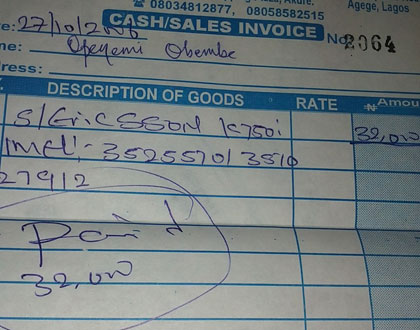 Akure.
☎ 08034812877, 08058582515
Agege, Lagos
CASH/SALES INVOICE
No 2064
te: 27/10/2006
me: Opeyemi Obembe
ress:
DESCRIPTION OF GOODS RATE ₦ Amou
S/Ericsson K750i 32,000
IMEI:- 352557013510
27912
Paid
32,000